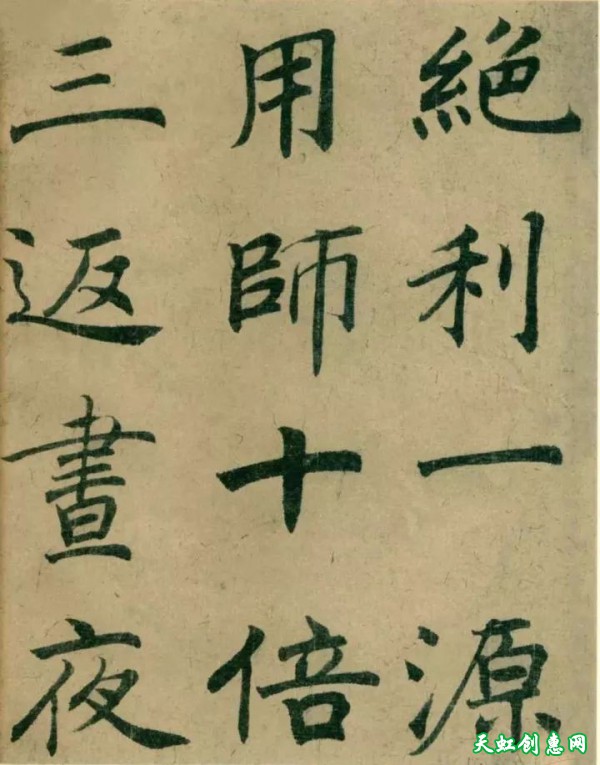 絶利一源
用師十倍
三返晝夜
天虹创惠网